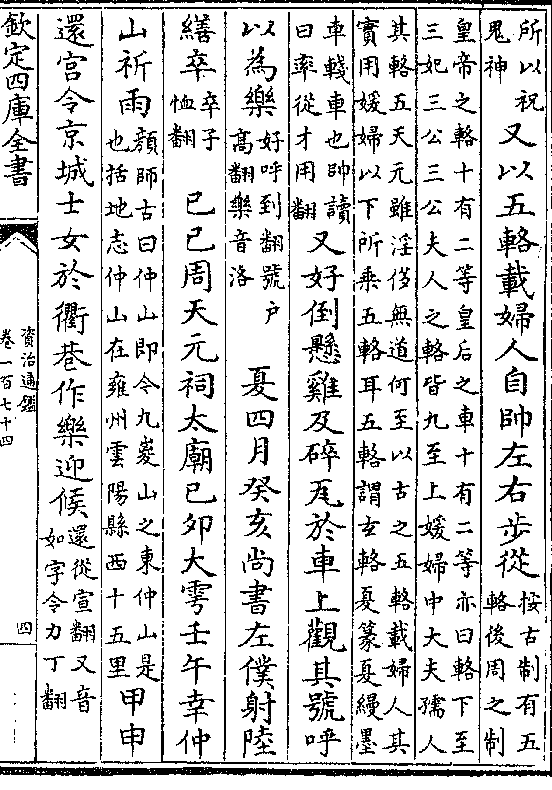 所以祝鬼神又以五輅載婦人自帥左右步從按古制有五輅後周之制
皇帝之輅十有二等皇后之車十有二等亦曰輅下至
三妃三公三公夫人之輅皆九至上媛婦中大夫孺人
其輅五天元雖淫侈無道何至以古之五輅載婦人其
實用媛婦以下所乘五輅耳五輅謂玄輅夏篆夏縵墨
車輚車也帥讀曰率從才用翻又好倒懸雞及碎瓦於車上觀其號呼
以為樂好呼到翻號戶高翻樂音洛 夏四月癸亥尚書左僕射陸
繕卒卒子恤翻 己巳周天元祠太廟己卯大雩壬午幸仲
山祈雨顏師古曰仲山即今九嵏山之東仲山是也括地志仲山在雍州雲陽縣西十五里甲申
還宮令京城士女於衢巷作樂迎候還從宣翻又音如字令力丁翻
欽定四庫全書
資治通鑑
卷一百七十四
四